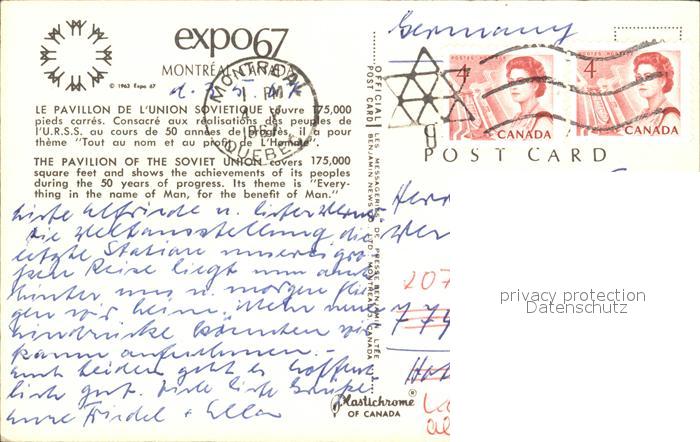 Germany
expo67
MONTRÉAL, CANADA
© 1963 Expo 67
MONTREAL
PM
1967
QUEBEC
LE PAVILLON DE L'UNION SOVIETIQUE couvre 175,000
pieds carrés. Consacré aux réalisations des peuples de
l'U.R.S.S. au cours de 50 années de progrès, il a pour
thème "Tout au nom et au profit de L'Homme".
THE PAVILION OF THE SOVIET UNION covers 175,000
square feet and shows the achievements of its peoples
during the 50 years of progress. Its theme is "Every-
thing in the name of Man, for the benefit of Man."
Liebe Elfriede u. lieber Werner
die Weltausstellung die
letzte Station unserer gro
ßen Reise liegt nun auch
hinter uns u. morgen flie
gen wir heim. Mehr neue
Eindrücke könnten wir
kaum aufnehmen. –
Euch beiden geht es hoffent
lich gut. Viele liebe Grüße
eure Friedel + Ella
OFFICIAL POST CARD
LES MESSAGERIES DE PRESSE BENJAMIN LTÉE
BENJAMIN NEWS LTD. MONTREAL 3, CANADA
Plastichrome®
OF CANADA
POSTES POSTAGE
4
CANADA
POSTES POSTAGE
4
CANADA
POST CARD
Herr
Wer
207
774
privacy protection
Datenschutz